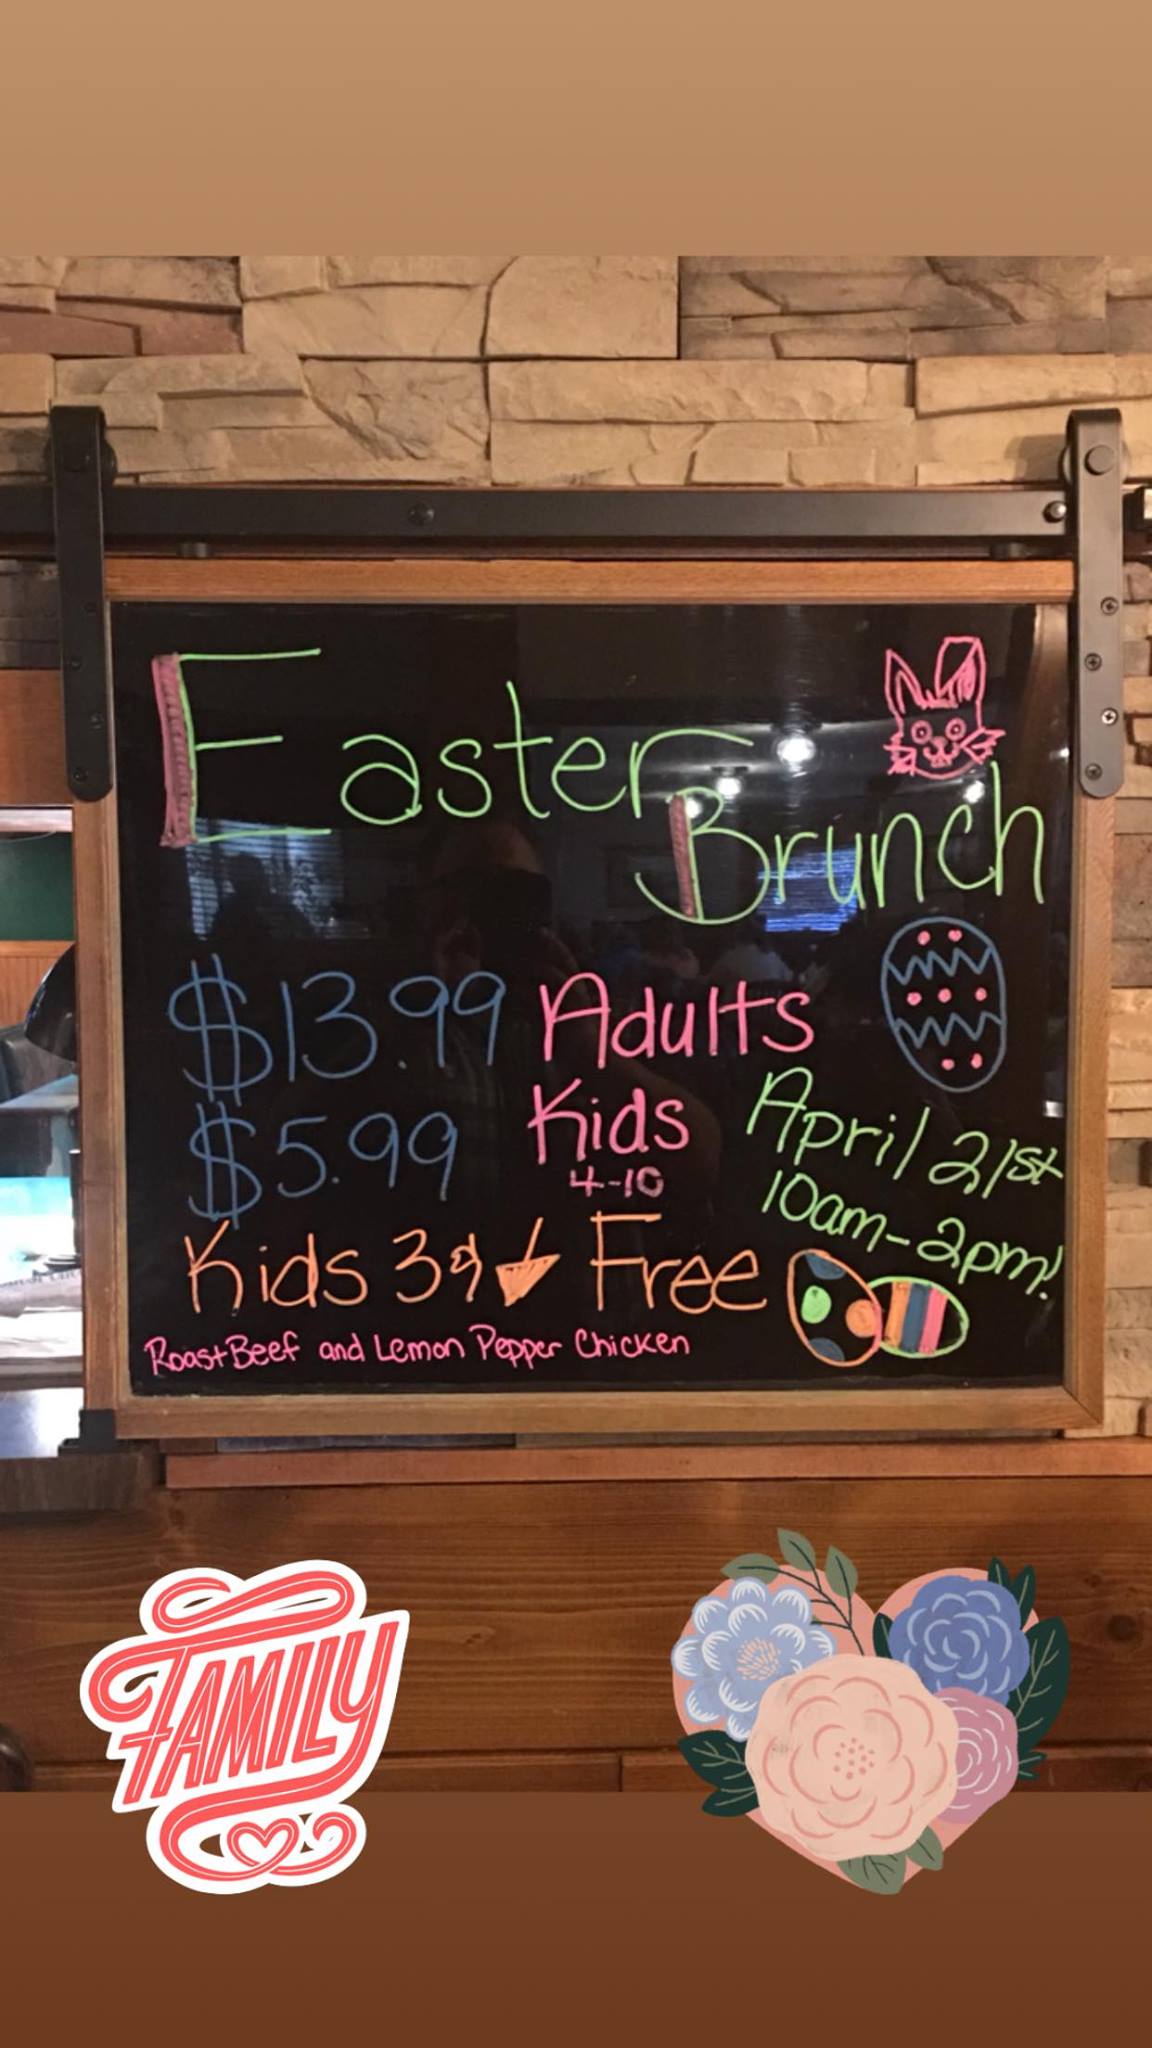 Easter
Brunch
$13.99 Adults
$5.99 Kids
4-10
April 21st
10am-2pm!
Kids 3&↓ Free
Roast Beef and Lemon Pepper Chicken
FAMILY